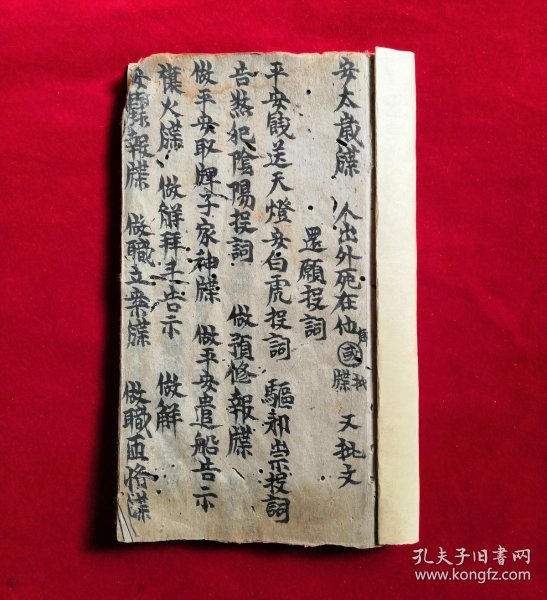 安太歲牒 人出外死在他國牒 又批文
還願投詞
平安餞送天燈安白虎投詞 驅邪祟投詞
告煞犯陰陽投詞 做預修報牒
做平安取牌子家神牒 做平安遣船告示
禳火牒 做解拜斗告示 做解
報牒 做職立業牒 做職
孔夫子旧书网
www.kongfz.com